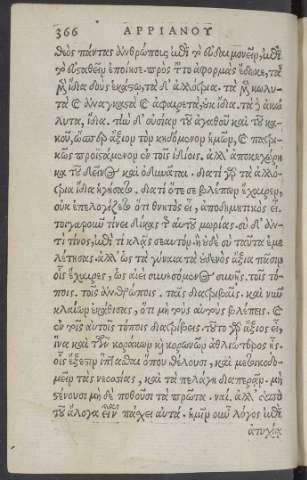 366 ΑΡΡΙΑΝΟΥ
θεὸς πάντας ἀνθρώπους, καὶ
τὸ εὐσταθεῖν ἐποίησε. πρὸς τοῦτο ἀφορμὰς ἔδωκε, τὰ
μὲν ἴδια δοὺς ἑκάστῳ, τὰ δ' ἀλλότρια. τὰ μὲν κωλυ-
τὰ καὶ ἀναγκαστὰ καὶ ἀφαιρετὰ, οὐκ ἴδια. τὰ δ' ἀκώ
λυτα, ἴδια. τὴν δ' οὐσίαν τοῦ ἀγαθοῦ καὶ τοῦ κα-
κοῦ, ὥσπερ ἄξιον τὸν κηδόμενον ἡμῶν, καὶ πατρι-
κῶς προϊστάμενον ἐν τοῖς ἰδίοις. ἀλλ' ἀποκεχώρη
κα τοῦ δεῖνος καὶ ὀδυνᾶται. διατί γὰρ τὰ ἀλλό-
τρια ἴδια ἡγήσατο. διατί ὅτε σε βλέπων ἔχαιρεν,
οὐκ ἐπελογίζετο ὅτι θνητὸς εἶ, ἀποδημητικὸς εἶ.
τοιγαροῦν τίνει δίκας τῆς αὑτοῦ μωρίας. σὺ δ' ἀν-
τὶ τίνος, ἐπὶ τί κλαίεις σεαυτόν. ἢ οὐδὲ σὺ ταῦτα ἐμε
λέτησας. ἀλλ' ὡς τὰ γύναια τὰ οὐδενὸς ἄξια πᾶσιν
οἷς ἔχαιρες, ὡς αἰεὶ συνεσόμενος συνῆς. τοῖς τό-
ποις. τοῖς ἀνθρώποις. ταῖς διατριβαῖς. καὶ νῦν
κλαίων ἐκάθισας, ὅτι μὴ τοὺς αὐτοὺς βλέπεις. καὶ
ἐν τοῖς αὐτοῖς τόποις διατρίβεις. τούτου γὰρ ἄξιος εἶ,
ἵνα καὶ τῶν κοράκων καὶ κορωνῶν ἀθλιώτερος ᾖς.
οἷς ἔξεστιν ἵπτασθαι ὅπου θέλουσι, καὶ μετοικοδο-
μεῖν τὰς νεοσσίας, καὶ τὰ πελάγη διαπερᾷν. μὴ
στένουσι μὴ δὲ ποθοῦσι τὰ πρῶτα. ναί. ἀλλ' ὑπὸ
τοῦ ἄλογα εἶναι πάσχει αὐτά. ἡμῖν οὖν λόγος ἐπὶ
ἀτυχίᾳ